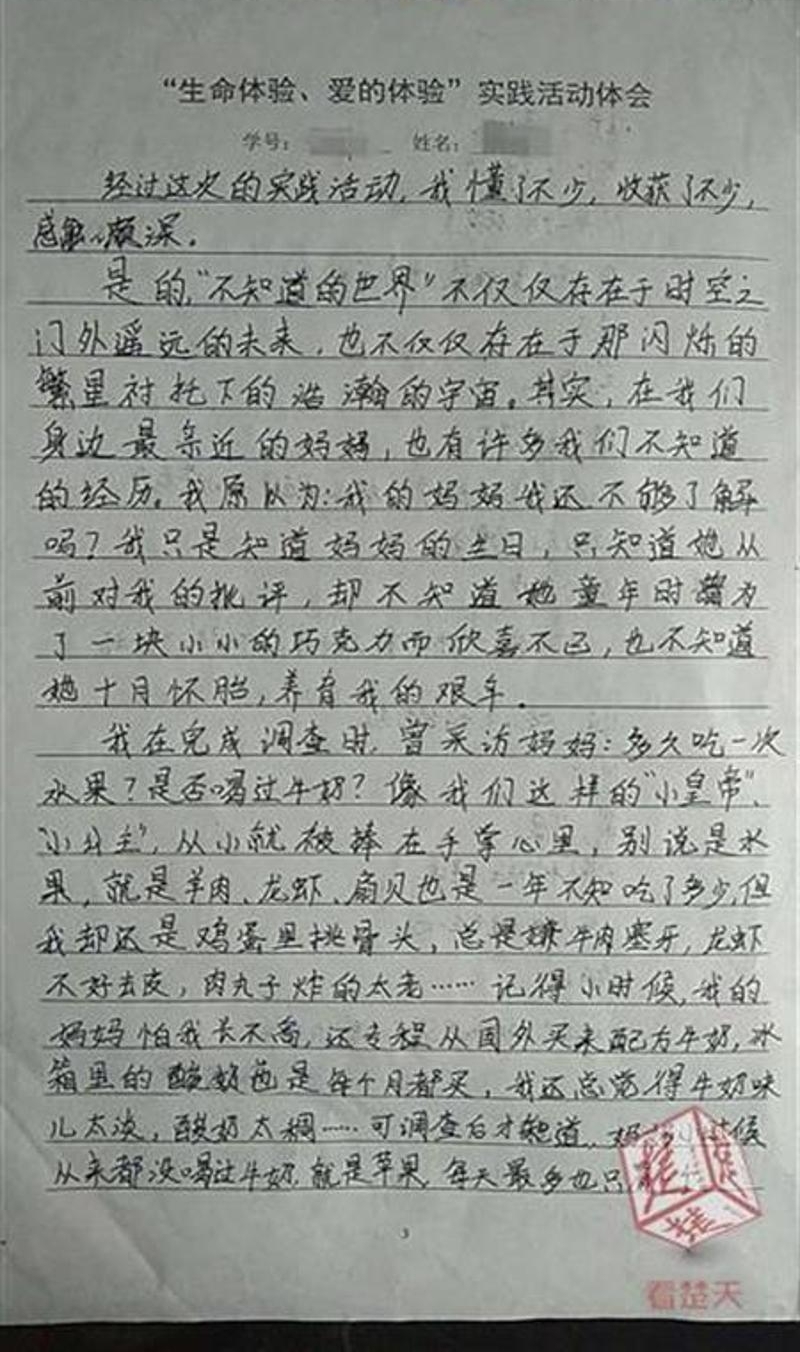 “生命体验、爱的体验”实践活动体会
学号： 姓名：
经过这次的实践活动，我懂了不少，收获了不少，
感触颇深。
是的，“不知道的世界”不仅仅存在于时空之
门外遥远的未来，也不仅仅存在于那闪烁的
繁星衬托下的浩瀚的宇宙。其实，在我们
身边最亲近的妈妈，也有许多我们不知道
的经历。我原以为：我的妈妈我还不够了解
吗？我只是知道妈妈的生日，只知道她从
前对我的批评，却不知道她童年时曾为
了一块小小的巧克力而欣喜不已，也不知道
她十月怀胎，养育我的艰辛。
我在完成调查时，曾采访妈妈：多久吃一次
水果？是否喝过牛奶？像我们这样的“小皇帝”、
“小公主”，从小就被捧在手掌心里，别说是水
果，就是羊肉、龙虾、扇贝也是一年不知吃了多少，但
我却还是鸡蛋里挑骨头，总是嫌牛肉塞牙，龙虾
不好去皮，肉丸子炸的太老……记得小时候，我的
妈妈怕我长不高，还专程从国外买来配方牛奶，冰
箱里的酸奶也是每个月都买，我还总觉得牛奶味
儿太淡，酸奶太稠……可调查后才知道，妈妈小时候
从来都没喝过牛奶，就是苹果，每天最多也只
3
看楚天